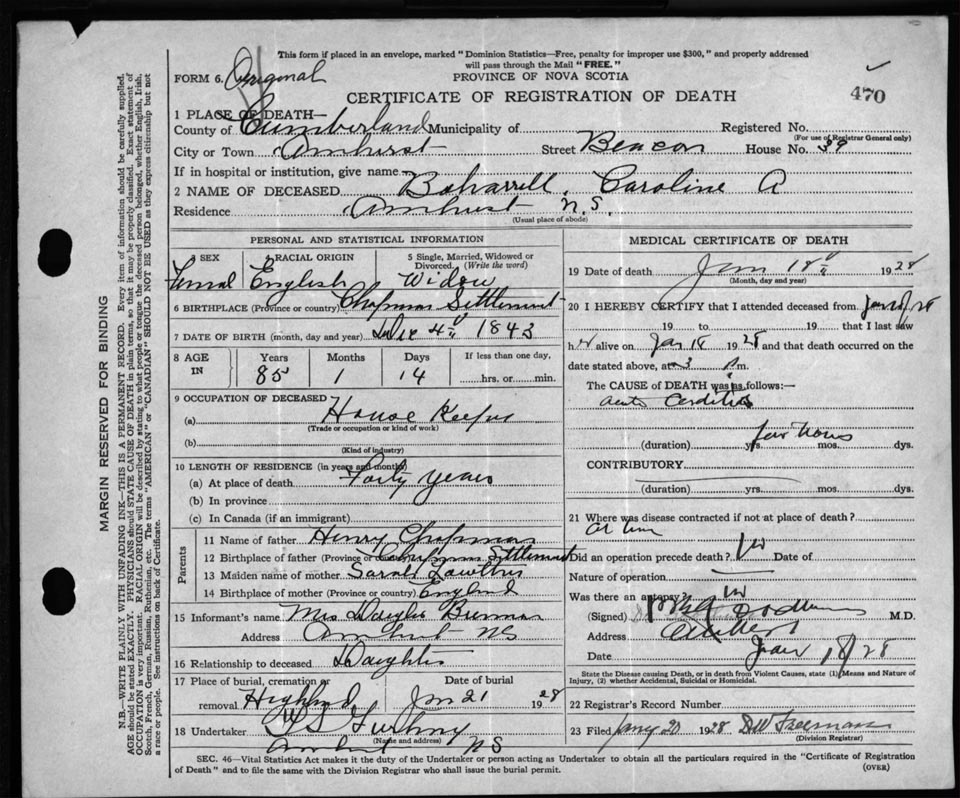 This form if placed in an envelope, marked "Dominion Statistics—Free, penalty for improper use $300," and properly addressed
will pass through the Mail "FREE."
FORM 6. Original
PROVINCE OF NOVA SCOTIA
CERTIFICATE OF REGISTRATION OF DEATH
470
1 PLACE OF DEATH—
County of Cumberland Municipality of Registered No.
(For use of Registrar General only)
City or Town Amherst Street Beacon House No. 39
If in hospital or institution, give name
2 NAME OF DECEASED Caroline A
Residence Amherst N.S.
(Usual place of abode)
PERSONAL AND STATISTICAL INFORMATION
SEX RACIAL ORIGIN 5 Single, Married, Widowed or Divorced. (Write the word)
Femal English Widow
6 BIRTHPLACE (Province or country) Chapman Settlement
7 DATE OF BIRTH (month, day and year) 4 1843
8 AGE IN Years Months Days If less than one day,
85 1 14 hrs. or min.
9 OCCUPATION OF DECEASED
(a) House Keeper
(Trade or occupation or kind of work)
(b)
(Kind of industry)
10 LENGTH OF RESIDENCE (in years and months)
(a) At place of death Forty years
(b) In province
(c) In Canada (if an immigrant)
Parents
11 Name of father Henry Chapman
12 Birthplace of father (Province or Chapman Settlement
13 Maiden name of mother Sarah
14 Birthplace of mother (Province or country) England
15 Informant's name Mrs Douglas
Address Amherst NS
16 Relationship to deceased Daughter
17 Place of burial, cremation or removal Date of burial
Highland Jan 21 1928
18 Undertaker
(Name and address)
Amherst NS
MEDICAL CERTIFICATE OF DEATH
19 Date of death Jan 18 1928
(Month, day and year)
20 I HEREBY CERTIFY that I attended deceased from Jan 28
19 to 19 that I last saw
her alive on Jan 18 1928 and that death occurred on
date stated above, at 3 p m.
The CAUSE of DEATH was as follows:—
(duration) yrs. mos. dys.
few hours
CONTRIBUTORY
(duration) yrs. mos. dys.
21 Where was disease contracted if not at place of death?
Did an operation precede death? No Date of
Nature of operation
Was there an autopsy? No
(Signed) M.D.
Address Amherst
Date Jan 18/28
State the Disease causing Death, or in death from Violent Causes, state (1) Means and Nature of
Injury, (2) whether Accidental, Suicidal or Homicidal.
22 Registrar's Record Number
23 Filed 20 1928 Freeman
(Division Registrar)
SEC. 46—Vital Statistics Act makes it the duty of the Undertaker or person acting as Undertaker to obtain all the particulars required in the "Certificate of Registration
of Death" and to file the same with the Division Registrar who shall issue the burial permit.
(OVER)
MARGIN RESERVED FOR BINDING
N.B.—WRITE PLAINLY WITH UNFADING INK—THIS IS A PERMANENT RECORD. Every item of information should be carefully supplied.
AGE should be stated EXACTLY. PHYSICIANS should STATE CAUSE OF DEATH in plain terms, so that it may be properly classified. Exact statement of
OCCUPATION is very important. RACIAL ORIGIN will be described by stating to what people or tongue the deceased person belonged, whether English, Irish,
Scotch, French, German, Russian, Ruthenian, etc. The terms "AMERICAN" or "CANADIAN" SHOULD NOT BE USED as they express citizenship but not
a race or people. See instructions on back of Certificate.